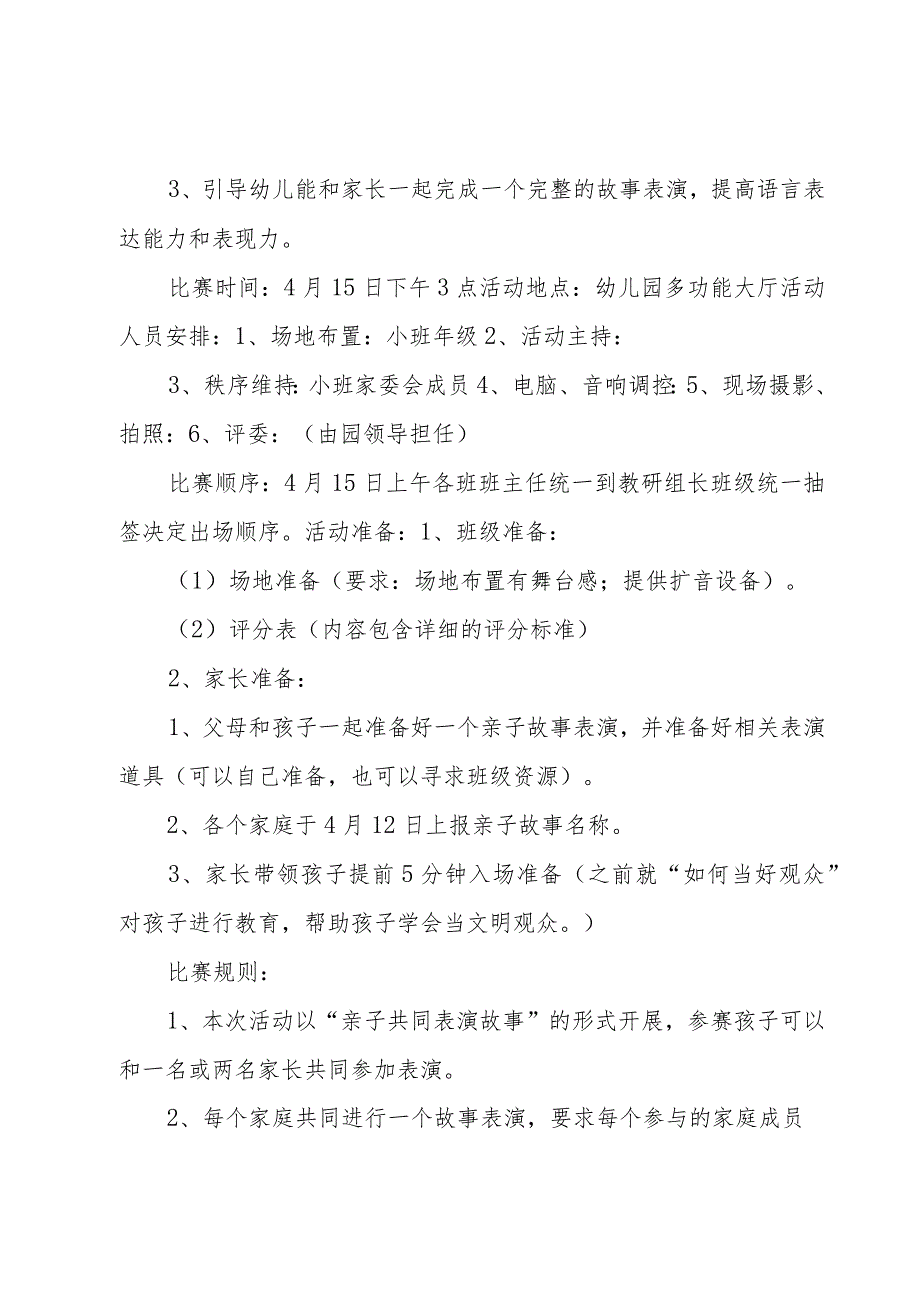 3、引导幼儿能和家长一起完成一个完整的故事表演，提高语言表
达能力和表现力。
比赛时间：4月15日下午3点活动地点：幼儿园多功能大厅活动
人员安排：1、场地布置：小班年级2、活动主持：
3、秩序维持：小班家委会成员4、电脑、音响调控：5、现场摄影、
拍照：6、评委：（由园领导担任）
比赛顺序：4月15日上午各班班主任统一到教研组长班级统一抽
签决定出场顺序。活动准备：1、班级准备：
（1）场地准备（要求：场地布置有舞台感；提供扩音设备）。
（2）评分表（内容包含详细的评分标准）
2、家长准备：
1、父母和孩子一起准备好一个亲子故事表演，并准备好相关表演
道具（可以自己准备，也可以寻求班级资源）。
2、各个家庭于4月12日上报亲子故事名称。
3、家长带领孩子提前5分钟入场准备（之前就“如何当好观众”
对孩子进行教育，帮助孩子学会当文明观众。）
比赛规则：
1、本次活动以“亲子共同表演故事”的形式开展，参赛孩子可以
和一名或两名家长共同参加表演。
2、每个家庭共同进行一个故事表演，要求每个参与的家庭成员